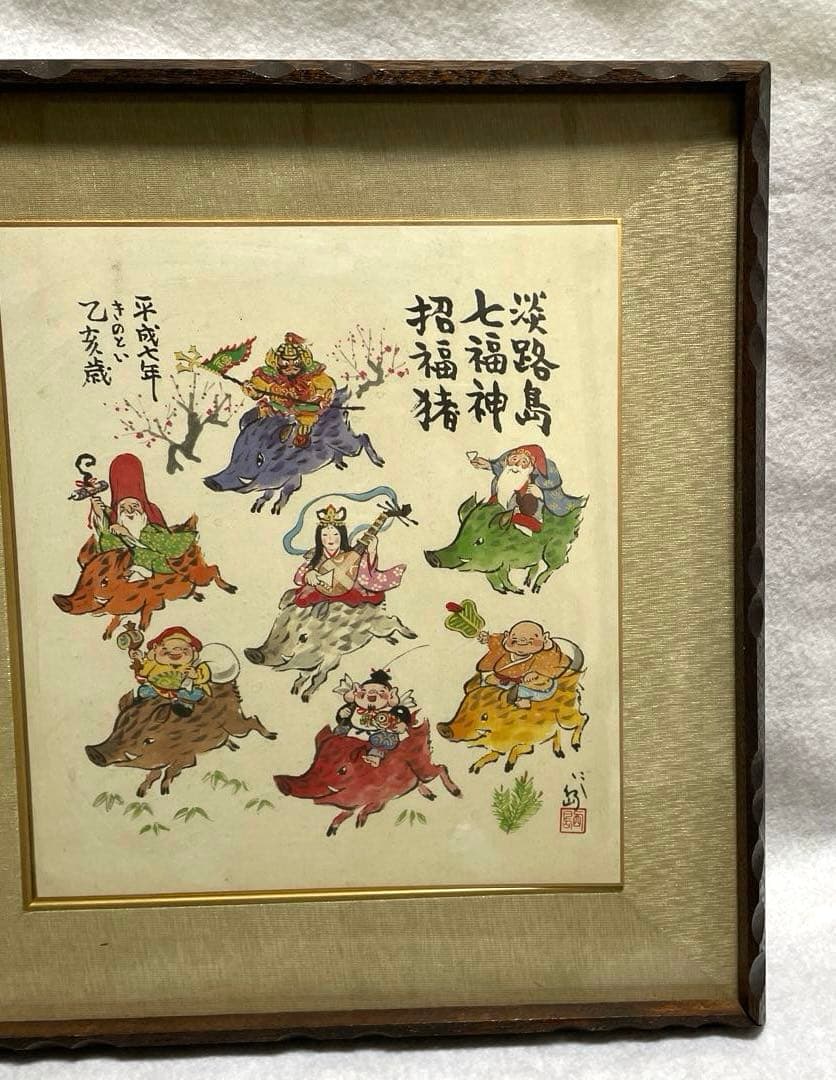 淡路島
七福神
招福猪
平成七年
きのとい
乙亥歳